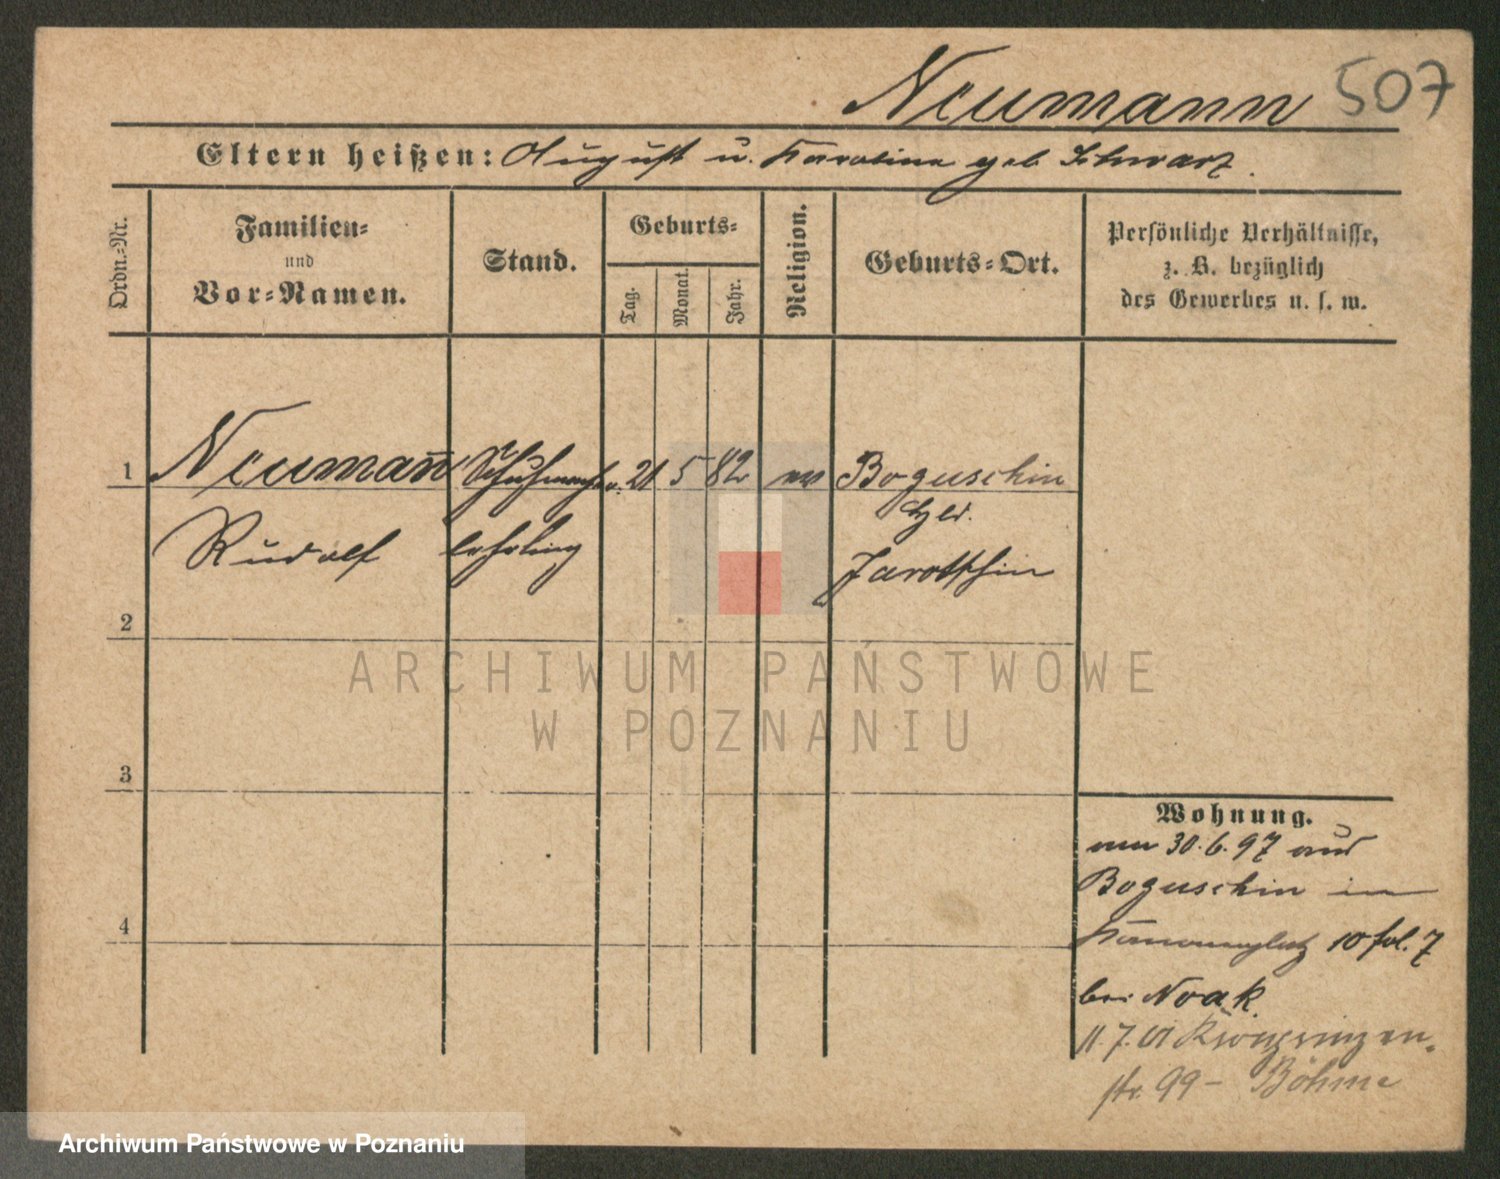 Neumann 507
Eltern heißen: August u. Karoline geb Schwarz.
Ordn.-Nr.
Familien-
und
Vor-Namen.
Stand.
Geburts-
Tag.
Monat.
Jahr.
Religion.
Geburts-Ort.
Persönliche Verhältnisse,
z. B. bezüglich
des Gewerbes u. s. w.
1 Neumann Schuhmacher 21 5 82 ev Boguschin
Rudolf lehrling
Jarotschin
2
3
4
Wohnung.
30.6.97 aus
Boguschin in
Kanonenplatz 10 fol. 7
bei Noak
11.7. Kronprinzen-
str. 99 - Böhme
ARCHIWUM PAŃSTWOWE
W POZNANIU
Archiwum Państwowe w Poznaniu